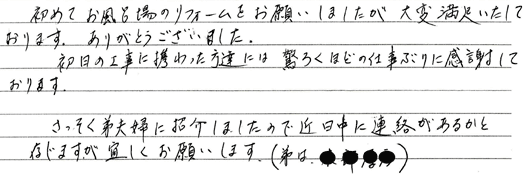 初めてお風呂場のリフォームをお願いしましたが大変満足いたして
おります。ありがとうございました。
初日の工事に携わった方達には驚ろくほどの仕事ぶりに感謝して
おります。
さっそく弟夫婦に紹介しましたので近日中に連絡があるかと
存じますが宜しくお願いします。(弟は、